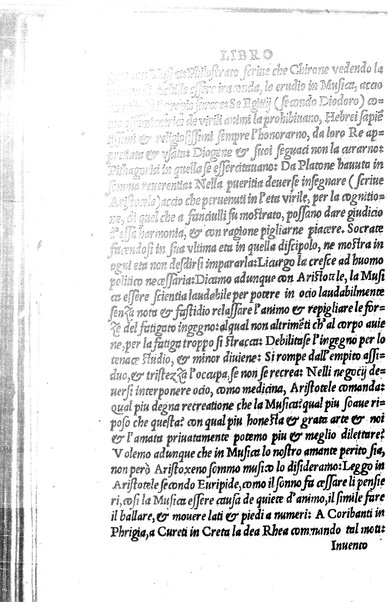 LIBRO
Musica: Philostrato scriue che Chirone vedendo la
Achille essere iraconda, lo erudio in Musica, accio
Se Egitij (secondo Diodoro) co-
de virili animi la prohibinano, Hebrei sapiē
tissimi & religiosissimi sempre l'honorarno, da loro Re ap-
prezata & vsata: Diogene & suoi seguaci non la curarno:
Pithagorici in quella se essercitauano: Da Platone hauuta in
somma reuerentia: Nella pueritia deuerse insegnare (scriue
Aristotele) accio che peruenuti in l'eta virile, per la cognitio-
ne, di quel che a fanciulli fu mostrato, possano dare giudicio
d'essa harmonia, & con ragione pigliarne piacere. Socrate
facendosi in sua vltima eta in quella discipolo, ne mostra in
ogni eta non desdirsi impararla: Licurgo la cresce ad huomo
politico necessaria: Dicamo adunque con Aristotele, la Musi
ca essere scientia laudabile per potere in ocio laudabilmente
senza nota & fastidio relassare l'animo & repigliare le for-
ze del fatigato ingegno: alqual non altrimēti ch'al corpo auie
ne, per la fatiga troppo si stracca: Debilitase l'ingegno per lo
tenace studio, & minor diuiene: Si rompe dall'empito assi-
duo, & tristezza l'occupa, se non se recrea: Nelli negocij de-
uersi interponere ocio, come medicina, Aristotele comanda:
Qual piu degna recreatione che la Musica? qual piu soaue ri-
poso che questa? con qual piu honesta & grata arte & noi
& l'amata priuatamente potemo piu & meglio dilettare?
Volemo adunque che in Musica lo nostro amante perito sia,
non però Aristoxeno sommo musico lo disideramo: Leggo in
Aristotele secondo Euripide, como il sonno fa cessare li pensie
ri, cosi la Musica essere causa de quiete d'animo, il simile fare
il ballare, & mouere lati & piedi a numeri: A Coribanti in
Phrigia, a Cureti in Creta la dea Rhea commando tal moti:
Inuento